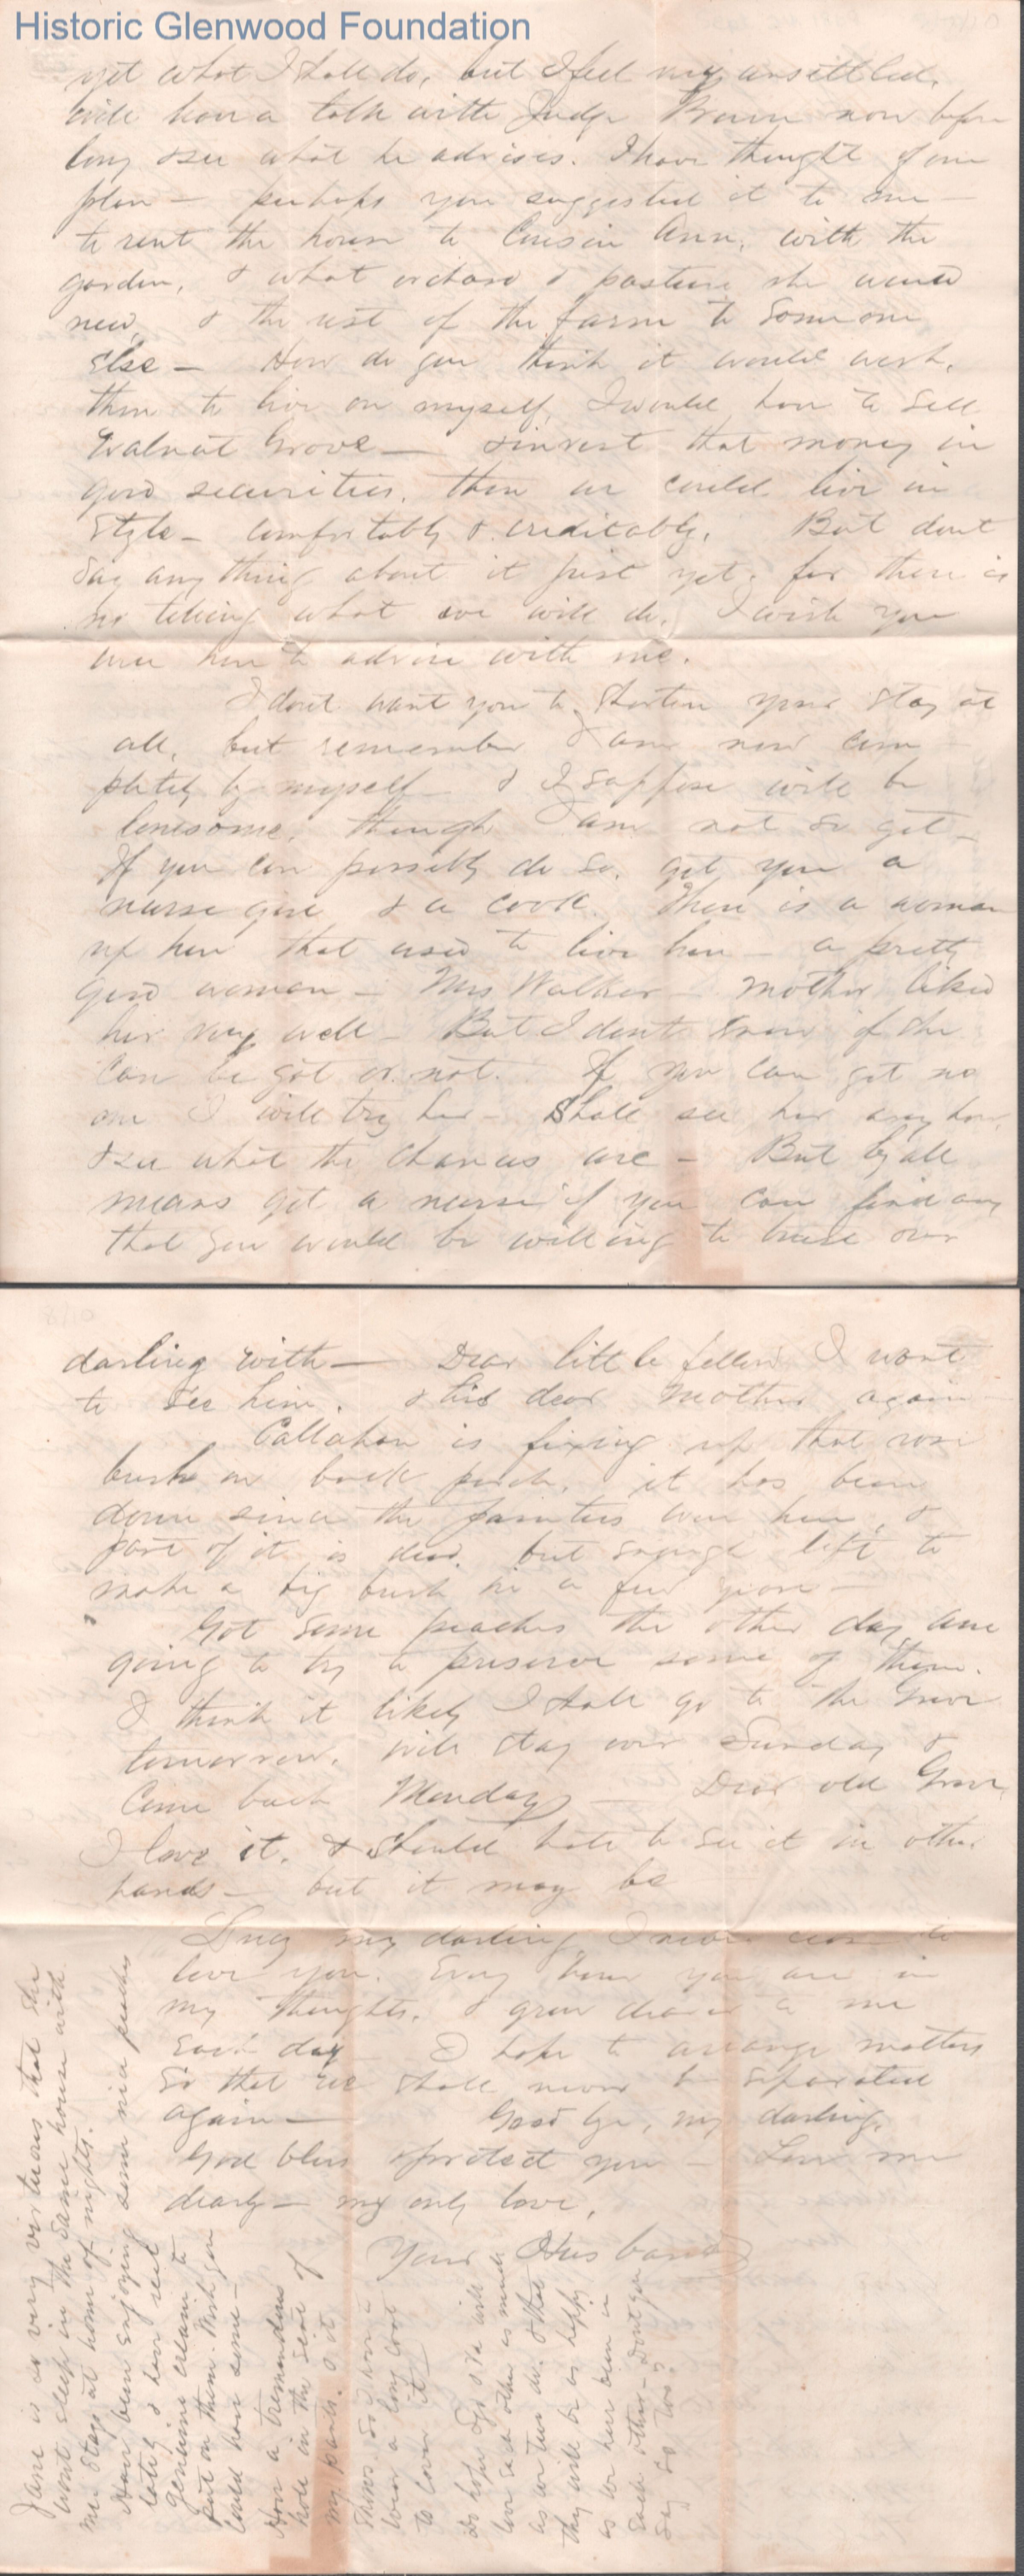 Historic Glenwood Foundation
yet what I shall do, but I feel very unsettled.
Will have a talk with Judge now before
long & see what he advises. I have thought of one
plan — perhaps you suggested it to me —
to rent the house to Cousin Ann, with the
garden, & what orchard & pasture she would
need, & the rest of the farm to some one
else — How do you think it would work,
then to live on myself, I would have to sell
Walnut Grove — & invest that money in
good securities. then we could live in
style — comfortably & creditably. But dont
say any thing about it just yet, for there is
no telling what we will do. I wish you
were here to advise with me.
I dont want you to shorten your stay at
all, but remember I am now com
pletely by myself & I suppose will be
lonesome, though I am not so yet —
If you can possibly do so, get you a
nurse girl & a cook. There is a woman
up here that used to live here — a pretty
good woman — Mrs Walker — Mother liked
her very well — But I dont know if she
can be got or not. If you can get no
one I will try her — Shall see her any how,
& see what the chances are — But by all
means get a nurse if you can find any
that you would be willing to trust our
darling with — Dear little fellow I want
to see him, & his dear Mother again
Callahan is fixing up that rose
bush on back porch, it has been
down since the painters were here, &
part of it is dead, but enough left to
make a big bush in a few years —
Got some peaches the other day am
going to try to preserve some of them.
I think it likely I shall go to the Grove
tomorrow, will stay over Sunday &
come back Monday — Dear old Grove,
I love it, & should hate to see it in other
hands — but it may be
Lucy my darling I never cease to
love you. Every hour you are in
my thoughts, & grow dearer to me
each day I hope to arrange matters
so that we shall never be separated
again — Good bye, my darling,
God bless & protect you — Love me
dearly — my only love,
Your Husband
Jane is so very virtuous that she
wont sleep in the same house with
me. Stays at home of nights.
Have been enjoying some nice peaches
lately & have real
genuine cream to
put on them. Wish you
could have some —
Have a tremendous
hole in the seat of
my pants. & it
shows, so I have to
wear a long coat
to cover it
do hope & Ida will
love each other as much
as we two do. & that
they will be as happy
as we have been in
each other — Dont you
say so too?